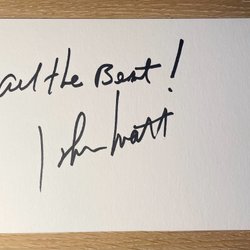 all the Best!
John Watt